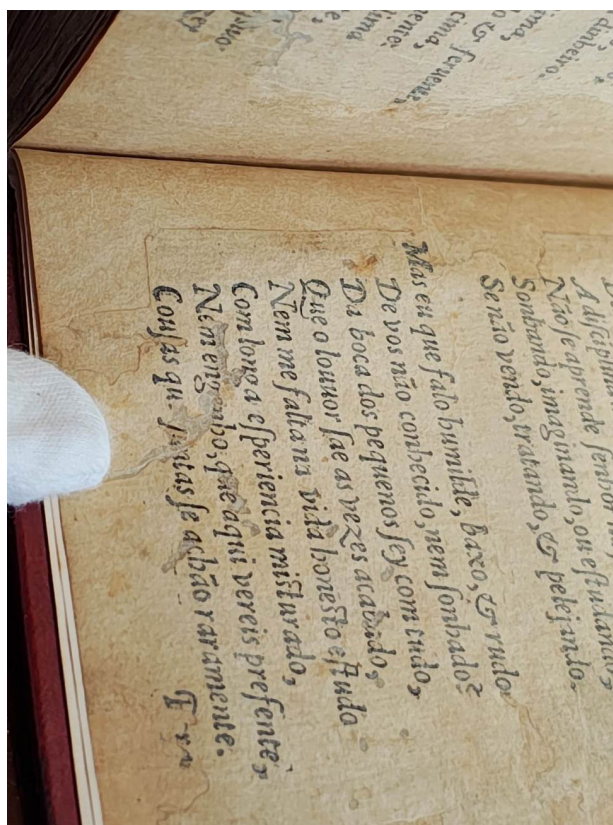 dinheiro.
& fervente,
cima,
lima
Não ſe aprende ſenhor
Sonhando, imaginando, ou eſtudando,
Se não vendo, tratando, & pelejando.
Mas eu que falo humilde, baxo, & rudo
De vos não conhecido, nem ſonhado?
Da boca dos pequenos ſey com tudo,
Que o louuor ſae as vezes acabado,
Nem me falta na vida honeſto eſtudo
Com longa eſperiencia miſturado,
Nem engenho, que aqui vereis preſente,
Couſas que juntas ſe achão raramente.